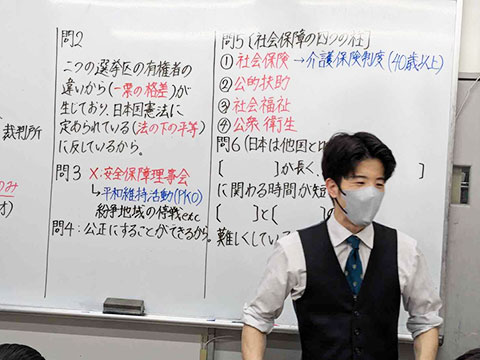 裁判所
のみ
問2
二つの選挙区の有権者の
違いから(一票の格差)が
生じており、日本国憲法に
定められている(法の下の平等)
に反しているから。
問3 X:安全保障理事会
↳平和維持活動(PKO)
紛争地域の停戦etc
問4:公正にすることができるから。
問5〔社会保障の四つの柱〕
① 社会保険 → 介護保険制度(40歳以上)
② 公的扶助
③ 社会福祉
④ 公衆衛生
問6(日本は他国と
[ ]が長く、[ ]
に関わる時間が短
[ ]と[ ]の
難しくしてい